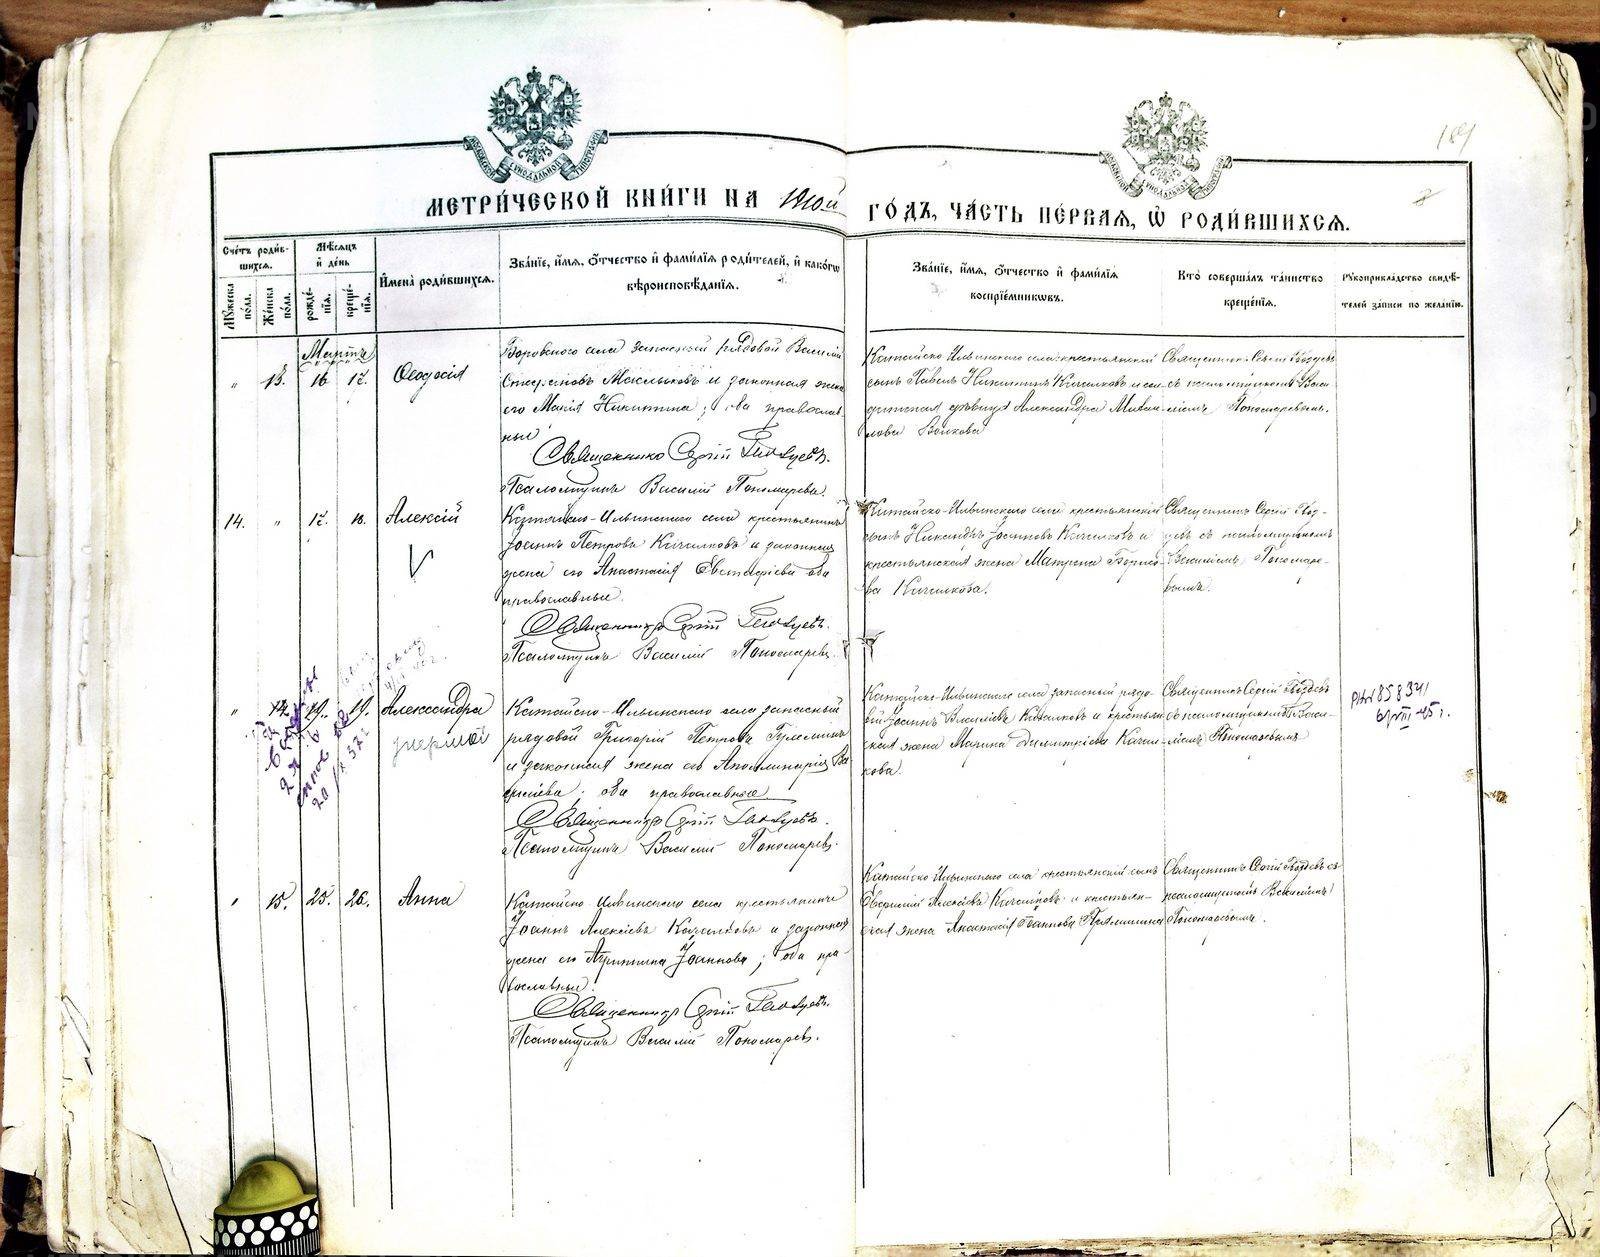 169
МЕТРИ́ЧЕСКОЙ КНИ́ГИ НА 1910й ГО́ДЪ, ЧА́СТЬ ПЕ́РВАЯ, Ѽ РОДИ́ВШИХСЯ.
Сче́тъ роди́в-
шихся.
Мꙋ́жеска
по́ла.
Же́нска
по́ла.
Мѣ́сяцъ
и҆ де́нь
рожде́-
нїя.
креще́-
нїя.
И҆мена̀ роди́вшихся.
Зва́нїе, и҆́мя, ѻ҆́тчество и҆ фами́лїя роди́телей, и҆ како́гѡ
вѣроисповѣ́данїя.
Зва́нїе, и҆́мя, ѻ҆́тчество и҆ фами́лїя
воспрїе́мникѡвъ.
Кто̀ соверша́лъ та́инство
креще́нїя.
Рꙋкоприкла́дство свидѣ́-
телей за́писи по жела́нїю.
Мартъ
" 13. 16 17. Ѳеодосія
Боровского села запасный рядовой Василій
Стефановъ Мыльковъ и законная жена
его Марія Никитина; оба православ-
ные.
Священникъ Сергій Гвоздевъ.
Псаломщикъ Василій Пономаревъ.
Катайско-Ильинского села крестьянскій
сынъ Павелъ Никитинъ Качалковъ и
дѣвица Александра Михаи-
лова Волкова
Священникъ Сергій Гвоздевъ
съ псаломщикомъ Васи-
ліемъ Пономаревымъ.
14. " 17. 18. Алексій
Катайско-Ильинского села крестьянинъ
Іоаннъ Петровъ Качалковъ и законная
жена его Анастасія Евстафіева оба
православные.
Священникъ Сергій Гвоздевъ.
Псаломщикъ Василій Пономаревъ.
Катайско-Ильинского села крестьянскій
сынъ Никандръ Іоанновъ Качалковъ и
крестьянская жена Матрона Борисо-
ва Качалкова.
Священникъ Сергій Гвоз-
девъ съ псаломщикомъ
Василіемъ Пономаре-
вымъ.
" 14. 19. 19. Александра
умерла
Катайско-Ильинского села запасный
рядовой Григорій Петровъ
и законная жена его Аполлинарія Ва-
силіева; оба православные
Священникъ Сергій Гвоздевъ.
Псаломщикъ Василій Пономаревъ.
Катайско-Ильинского села запасный рядо-
вой Іоаннъ Василіевъ Качалковъ и крестьян-
ская жена Марина Димитріева Качал-
кова.
Священникъ Сергій Гвоздевъ
съ псаломщикомъ Васи-
ліемъ Пономаревымъ
858341
6/VIII-45 г.
" 15. 25. 26. Анна
Катайско-Ильинского села крестьянинъ
Іоаннъ Алексіевъ Качалковъ и законная
жена его Агриппина Іоаннова; оба пра-
вославные.
Священникъ Сергій Гвоздевъ.
Псаломщикъ Василій Пономаревъ.
Катайско Ильинского села крестьянскій сынъ
Евфимій Алексіевъ Качалковъ и крестьян-
ская жена Анастасія Іоаннова
Священникъ Сергій Гвоздевъ съ
псаломщикомъ Василіемъ
Пономаревымъ.